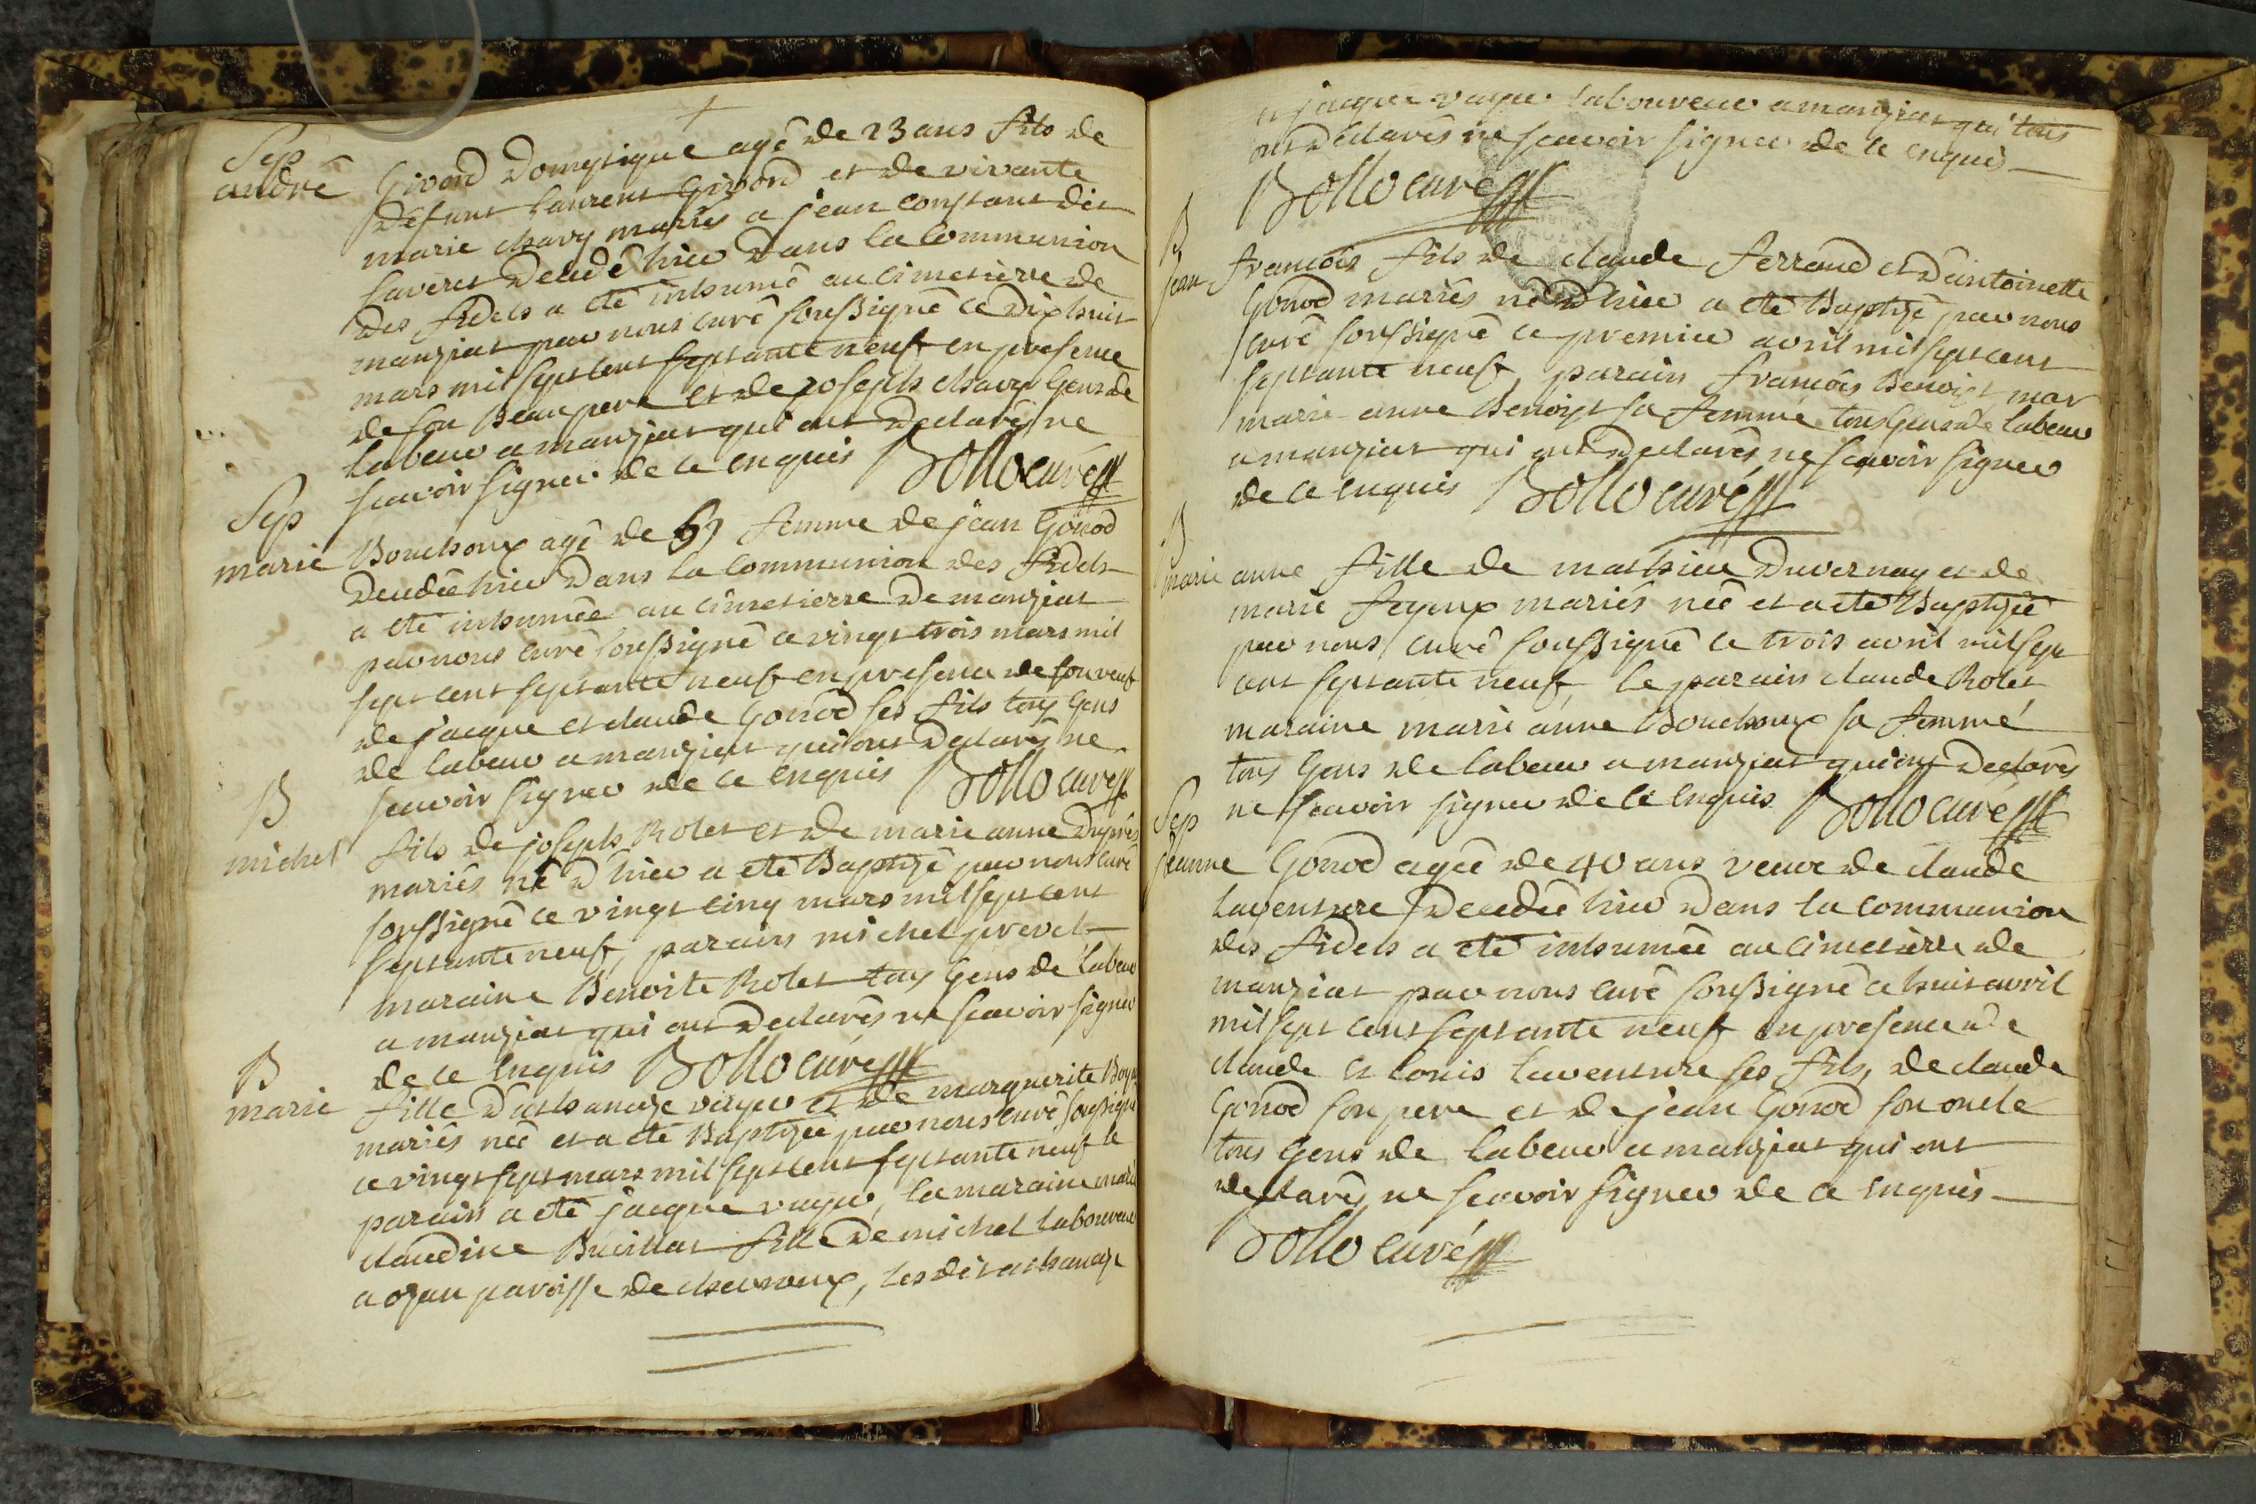 Sep
andré Givord Domestique agé de 23 ans fils de
Defunt laurent Givord et de vivante
marie chavy mariés a jean constant dit
faveret Decedé hier Dans la Communion
des fidels a eté inhumé au Cimetierre de
manziat par nous curé soussigné ce Dixhuit
mars mil sept cent septante neuf en presence
de son Beaupere et de joseph chavy Gens de
labeur a manziat qui ont Declarés ne
scavoir signer de ce enquis Bollo curé
Sep
marie Bouchoux agé de 69 femme de jean Gonod
Decedée hier Dans la Communion des fidels
a eté inhumée au cimetierre De manziat
par nous curé soussigné ce vingt trois mars mil
sept cent septante neuf en presence de son veuf
de jacque et claude Gonod ses fils tous Gens
de labeur a manziat qui ont Declarés ne
scavoir signer de ce enquis Bollo curé
B
michel fils de joseph Rolet et De marie anne Duprés
mariés né D hier a eté Baptizé par nous curé
soussigné ce vingt cinq mars mil sept cent
septante neuf, parains michel prevel
maraine Benoite Rolet tous Gens de labeur
a manziat qui ont Declarés ne scavoir signer
de ce enquis Bollo curé
B
marie fille D'athanaze et de marguerite
mariés née et a eté Baptizée par nous curé soussigné
ce vingt sept mars mil sept cent septante neuf le
parain a eté jacque la maraine marie
claudine fille De michel laboureur
a ozan paroisse de chevroux, les dit athanaze
et jacque laboureur a manziat qui tous
ont Declarés ne scavoir signer de ce enquis
Bollo curé
B
jean francois fils de claude ferrand et D'antoinette
Gonod mariés né D hier a eté Baptizé par nous
curé soussigné ce premier avril mil sept cent
septante neuf, parain francois Benoist mar
marie anne Benoist sa femme tous Gens de labeur
a manziat qui ont Declarés ne scavoir signer
de ce enquis Bollo curé
B
marie anne fille de mathieu Duvernay et de
marie feyeux mariés née et a eté Baptizée
par nous curé soussigné ce trois avril mil sept
cent septante neuf, le parain claude Rolet
maraine marie anne Bouchoux sa femme
tous Gens de labeur a manziat qui ont Declarés
ne scavoir signer de ce enquis Bollo curé
Sep
jeanne Gonod agée de 40 ans veuve de claude
laventure Decedée hier Dans la communion
des fidels a eté inhumée au cimetierre de
manziat par nous curé soussigné ce huit avril
mil sept cent septante neuf en presence de
claude et louis laventure ses fils, de claude
Gonod son pere et de jean Gonod son oncle
tous Gens de labeur a manziat qui ont
declarés ne scavoir signer de ce enquis
Bollo curé